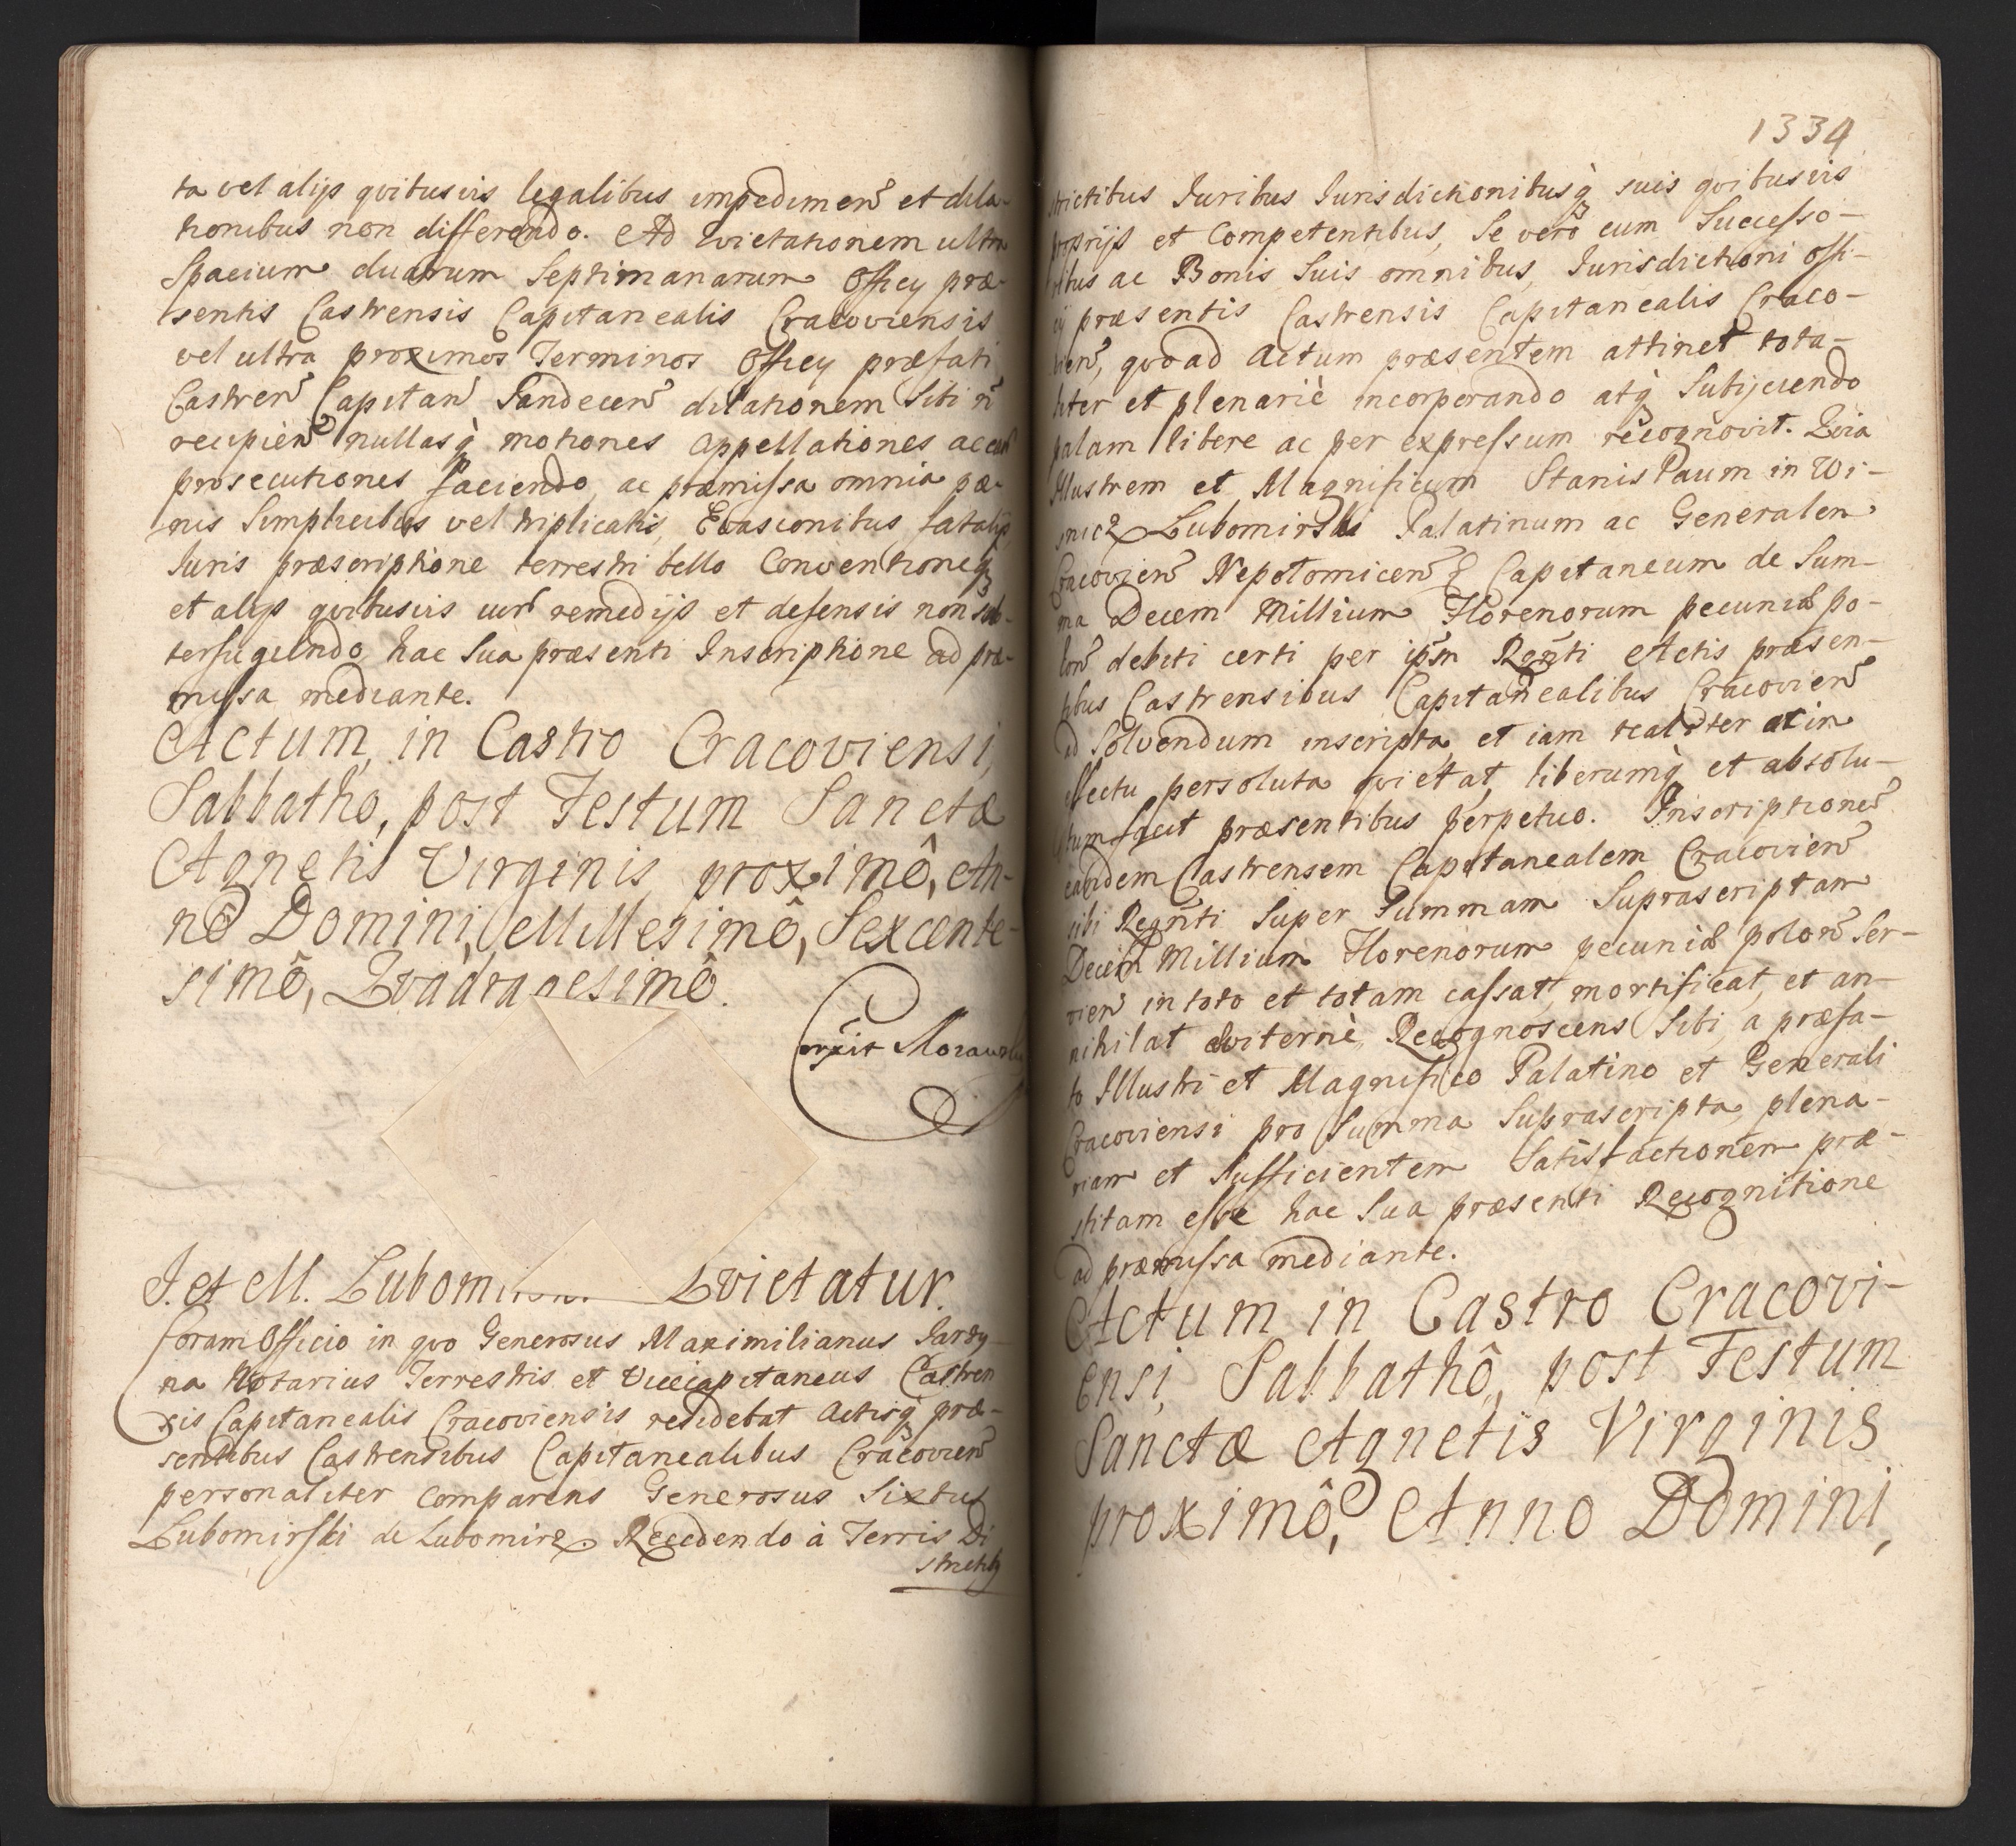 ta vel alijs qvibusvis legalibus impedimen̄ et dila-
tionibus non differendo. Ad Evictationem ultra
Spacium duarum Septimanarum Officij præ-
sentis Castrensis Capitanealis Cracoviensis
vel ultra proximos Terminos Officij præfati
Castren̄ Capitan̄ Sandecen̄ dilationem Sibi n̄
recipien̄ nullasq̃ motiones appellationes ac
prosecutiones faciendo, ac præmissa omnia pæ-
nis Simplicibus vel triplicatis, Evasionibus, fatalijs
Iuris præscriptione terrestri bello Conventioneq̃
et alijs qvibusvis iur̄ remedijs et defensis non sub-
terfugiendo, hac Sua præsenti Inscriptione ad præ-
missa mediante.
Actum, in Castro Cracoviensi,
Sabbatho, post Festum Sanctæ
Agnetis Virginis proximô, An-
nô Domini, Millesimô, Sexcente-
simô, Qvadragesimô.
Corrxit Morawski
I. et M. Lubomirski Qvietatur.
Coram Officio in qvo Generosus Maximilianus Iordy-
na Notarius Terrestris et Vicecapitaneus Castren
sis Capitanealis Cracoviensis residebat Actisq̃ præ-
sentibus Castrensibus Capitanealibus Cracovien̄
personaliter comparens Generosus Sixtus
Lubomirski de Lubomirz. Recedendo à Terris Di
strictib9
1334
strictibus Iuribus Iurisdictionibusq̃ suis qvibusvis
proprijs et Competentibus, Se verô cum Successo-
ribus ac Bonis Suis omnibus, Iurisdictioni Offi-
cij præsentis Castrensis Capitanealis Craco-
vien̄, qvoad Actum præsentem attinet tota-
liter et plenariè incorporando atq̃ Subijciendo
palam libere ac per expressum recognovit. Qvia
Illustrem et Magnificum Stanislaum in Wi-
snicz Lubomirski Palatinum ac Generalem
Cracovien̄ Nepolomicen̄ Capitaneum de Sum-
ma Decem Millium Florenorum pecuniæ po-
lon̄ debiti certi per ip̄m Rgn̄ti Actis præsen-
tibus Castrensibus Capitanealibus Cracovien̄
ad Solvendum inscripta et iam realiter ac in
effectu persoluta qvietat, liberumq̃ et absolu-
tum facit præsentibus perpetuo. Inscriptionem
eandem Castrensem Capitanealem Cracovien̄
sibi Regn̄ti Super Summam Suprascriptam
Decem Millium Florenorum pecuniæ polon̄ Ser-
vien̄ in toto et totam cassat, mortificat, et an-
nihilat æviternè, Recognoscens Sibi, a præfa-
to Illustri et Magnifico Palatino et Generali
Cracoviensi pro Summa Suprascripta, plena-
riam et Sufficientem Satisfactionem præ-
stitam esse hac Sua præsenti Recognitione
ad præmissa mediante.
Actum in Castro Cracovi-
ensi, Sabbathô, post Festum
Sanctæ Agnetis Virginis
proximô, Anno Domini,